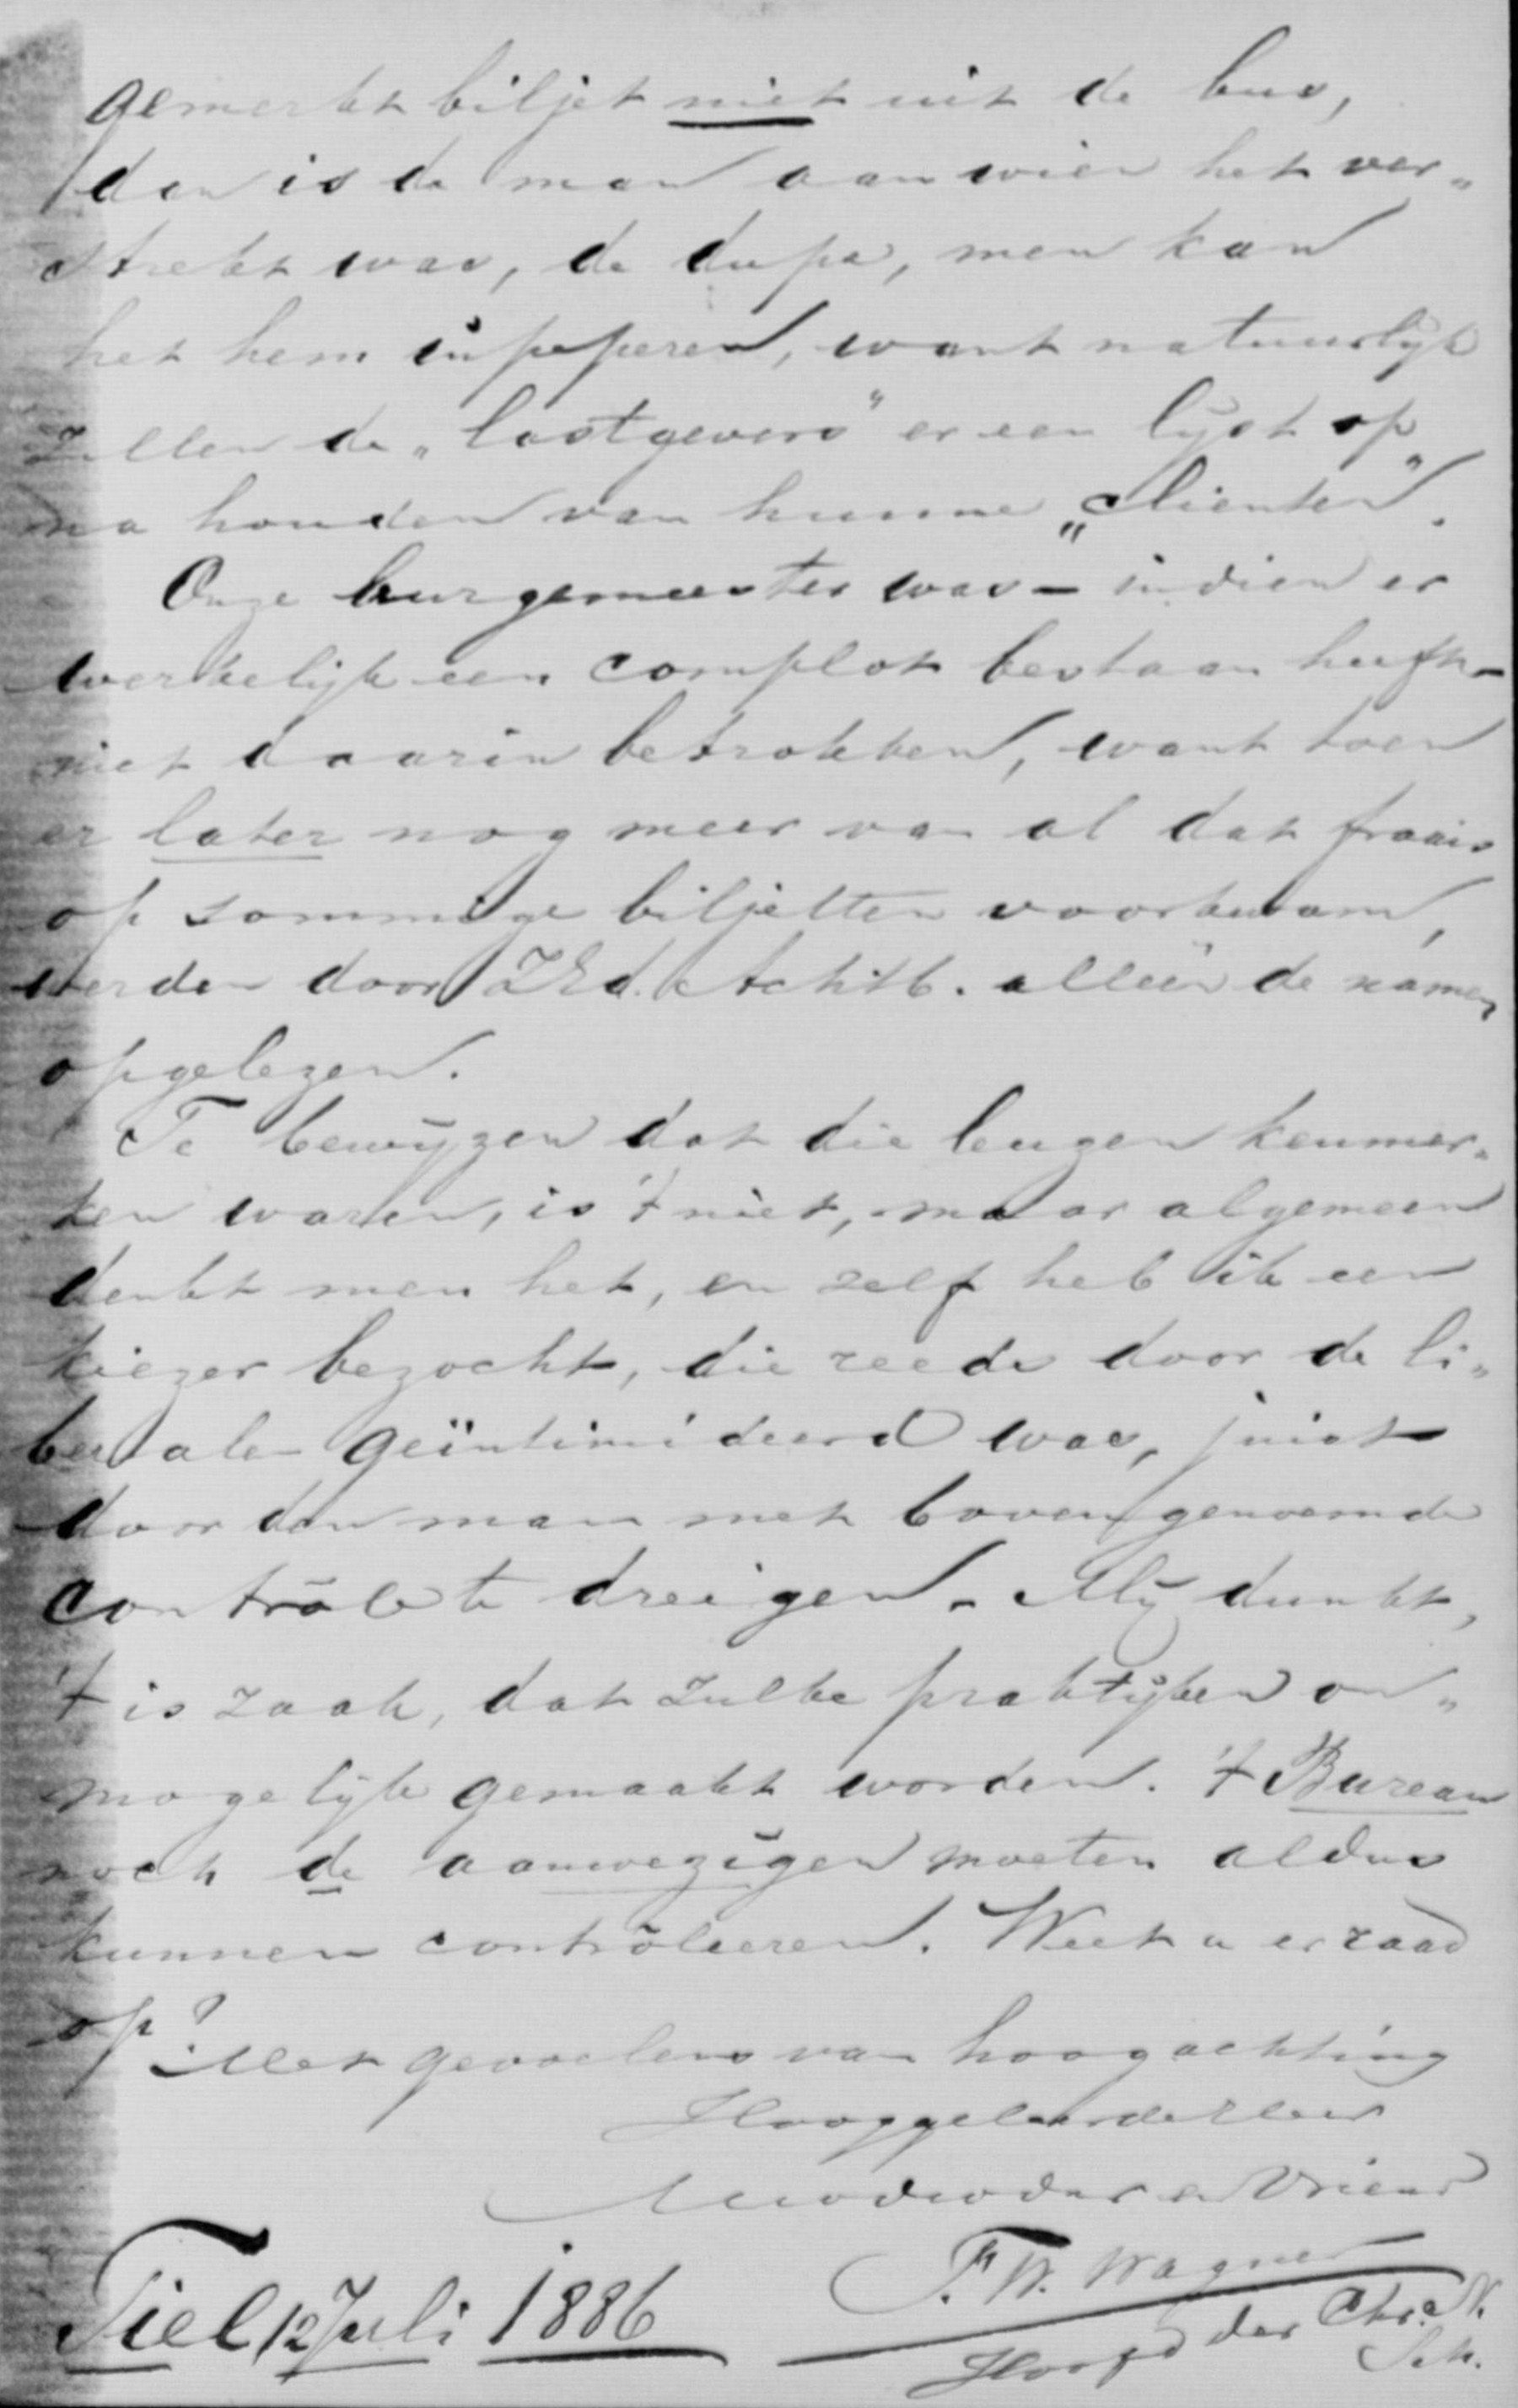 gemerkt biljet niet uit de bus,
dan is de man aan wien het ver„
strekt was, de dupe, men kan
het hem inpeperen, want natuurlijk
zullen de „lastgevers” er een lijst op
na houden van hunne „clienten”.
Onze burgemeester was – indien er
werkelijk een complot bestaan heeft –
niet daarin betrokken, want toen
er later nog meer van al dat fraais
op sommige biljetten voorkwam,
werden door ZEd. Achtb. alleen de namen
opgelezen.
Te bewijzen dat die leugen kenmer„
ken waren, is 't niet, maar algemeen
denkt men het, en zelf heb ik een
kiezer bezocht, die reeds door de li„
beralen geïntimideerd was, juist
door den man met bovengenoemde
contrôle te dreigen. Mij dunkt,
't is zaak, dat zulke praktijken on„
mogelijk gemaakt worden. 't Bureau
noch de aanwezigen moeten aldus
kunnen contrôleeren. Weet u er raad
op? Met gevoelens van hoogachting
Hooggeleerde Heer
Uwdwdnr en Vriend
F. W. Wagner
Tiel 12 Juli 1886
Hoofd der Chr. N.
Sch.